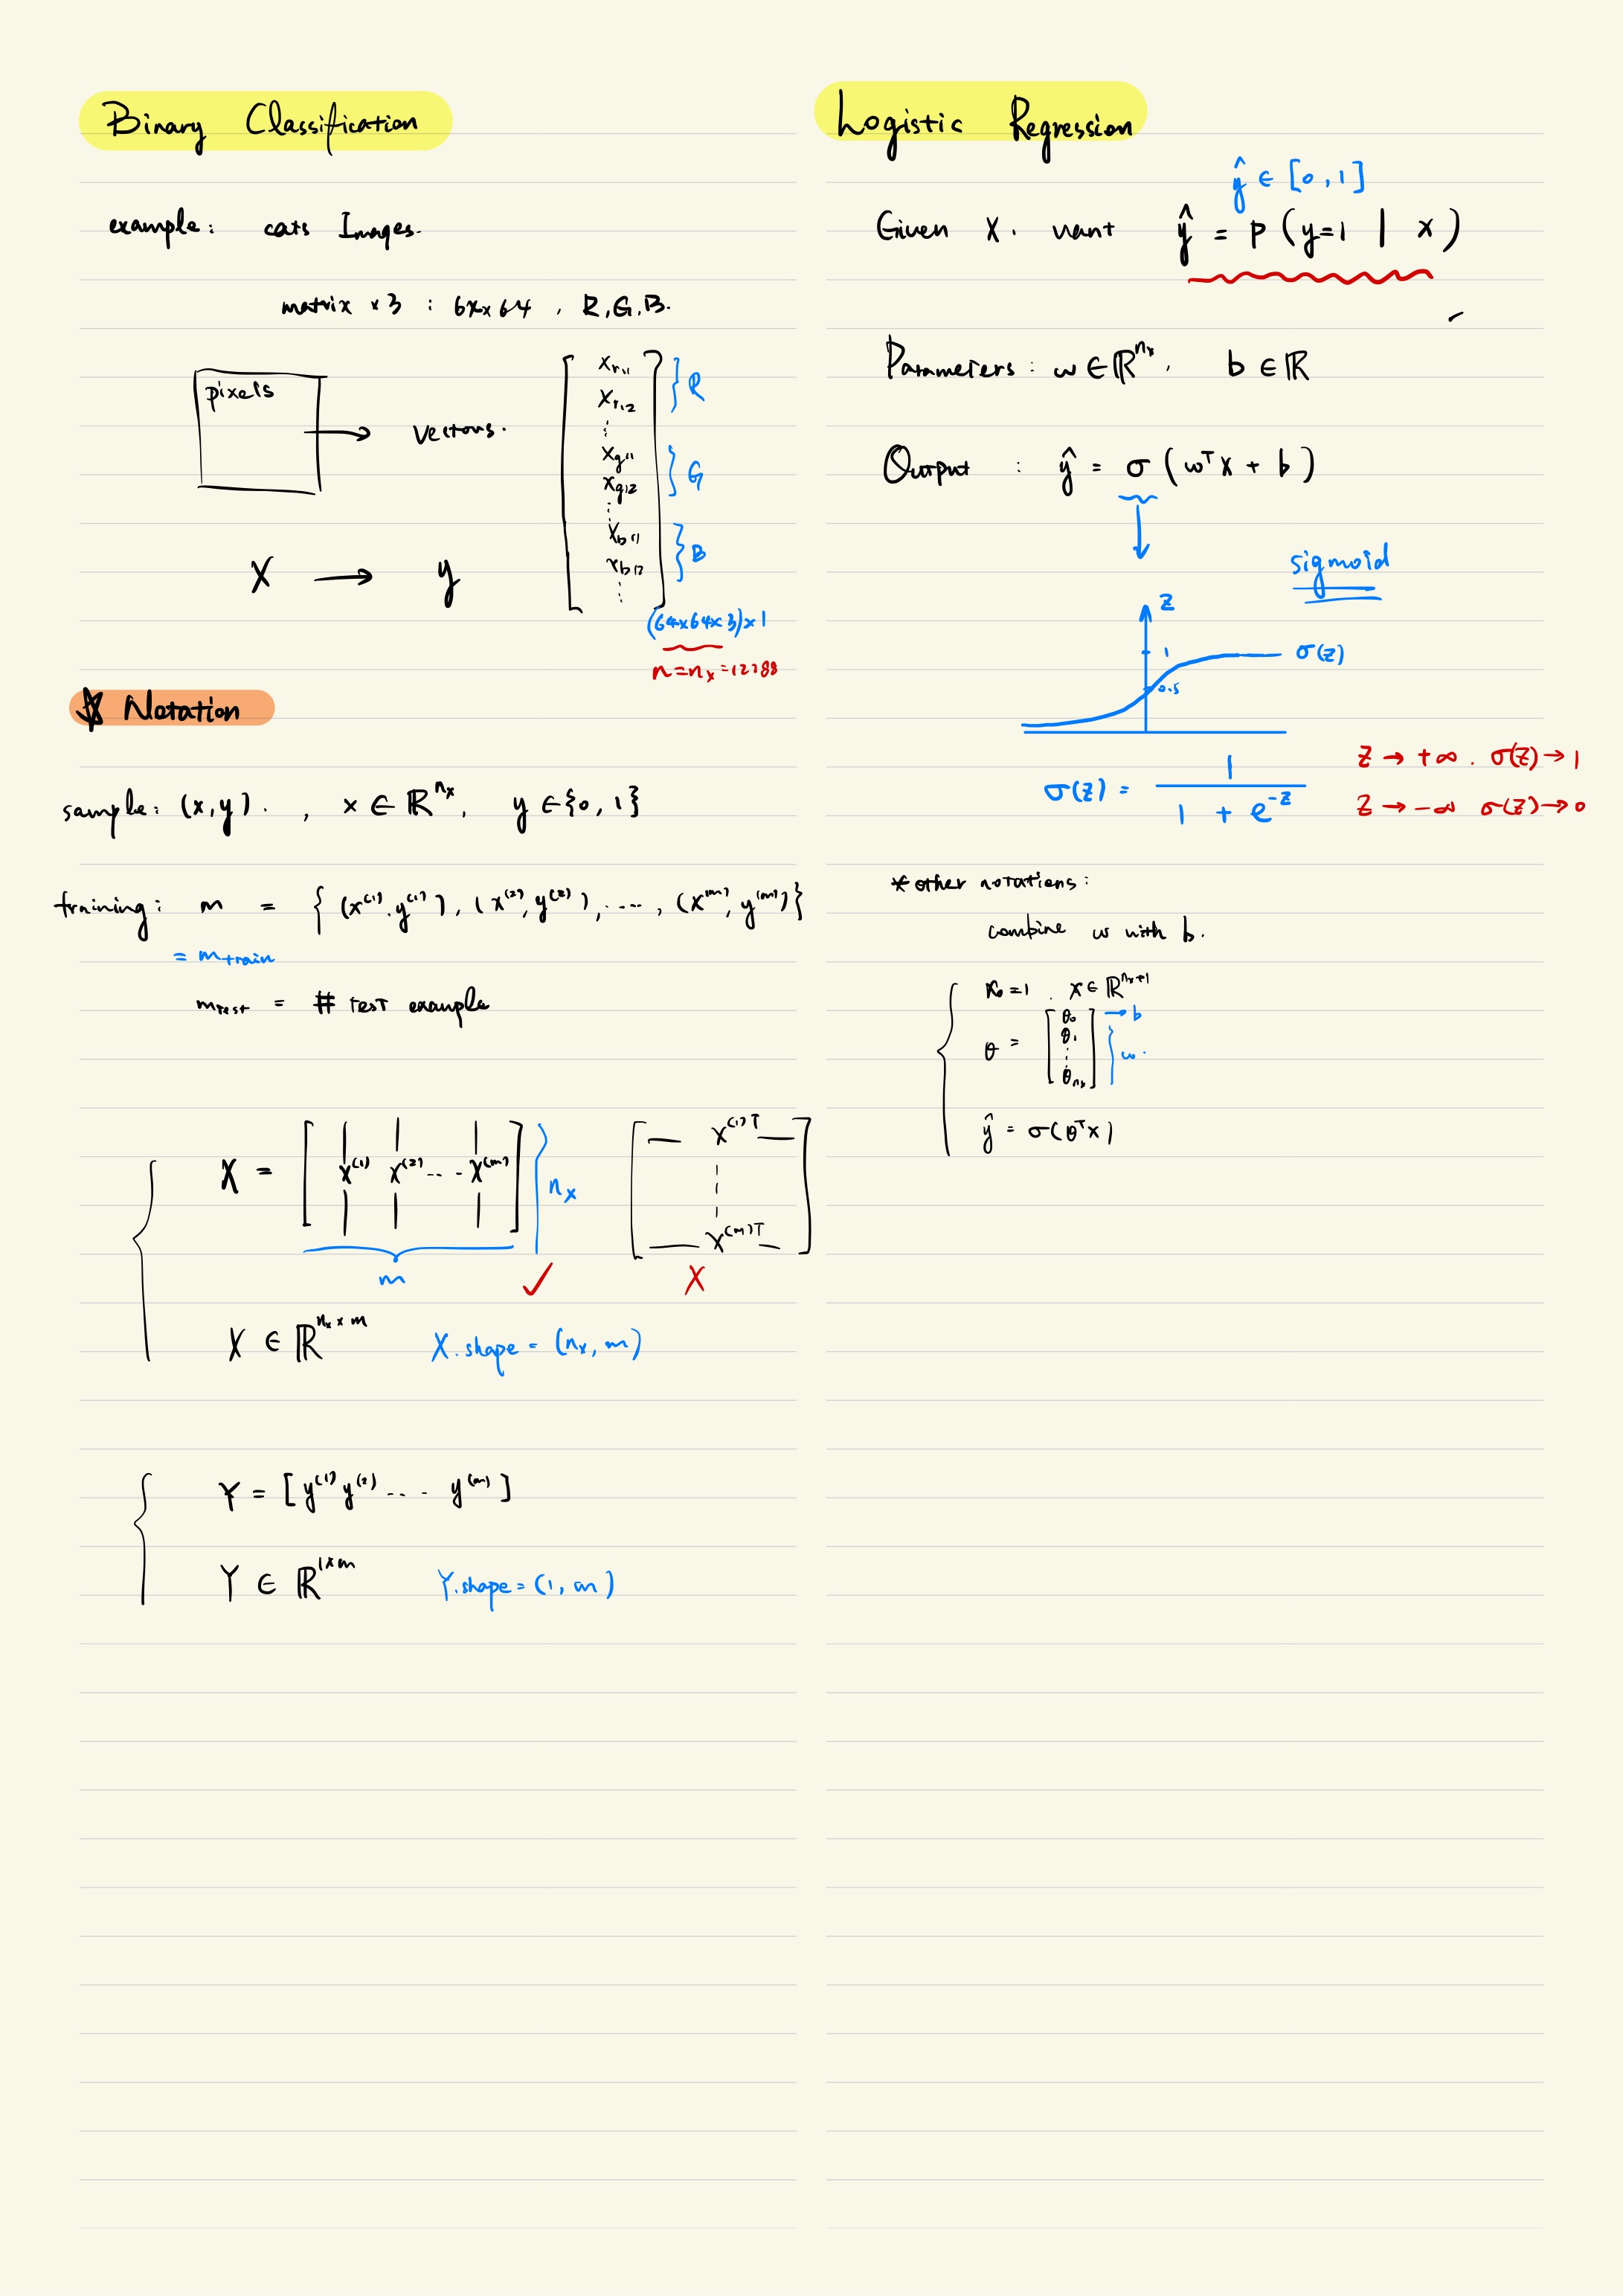 Binary Classification
example: cats Images.
matrix × 3 : 64×64 , R,G,B.
pixels → vectors.
x_r11
x_r12
⋮
} R
x_g11
x_g12
⋮
} G
x_b11
x_b12
⋮
} B
X → y
(64×64×3)×1
n=n_x=12288
Notation
sample: (x,y). , x ∈ ℝ^{n_x}, y ∈{0,1}
training: m = { (x^{(1)}, y^{(1)}), (x^{(2)}, y^{(2)}), ...., (x^{(m)}, y^{(m)})}
= m_train
m_test = # test example
X = [ x^{(1)} x^{(2)} ... x^{(m)} ] n_x
m ✓
[ — x^{(1)T} — ⋮ — x^{(m)T} — ]
X
X ∈ ℝ^{n_x × m} X.shape = (n_x, m)
Y = [ y^{(1)} y^{(2)} .... y^{(m)} ]
Y ∈ ℝ^{1×m} Y.shape = (1, m)
Logistic Regression
ŷ ∈ [0,1]
Given X. want ŷ = P (y=1 | x)
Parameters: w ∈ ℝ^{n_x}, b ∈ ℝ
Output : ŷ = σ (w^T x + b)
sigmoid
z
1
σ(z)
0.5
σ(z) = 1 / (1 + e^{-z})
z → +∞ . σ(z) → 1
z → -∞ σ(z) → 0
* other notations:
combine w with b.
x_0 = 1 . x ∈ ℝ^{n_x+1}
θ = [ θ_0 θ_1 ⋮ θ_{n_x} ] → b } w.
ŷ = σ(θ^T x)